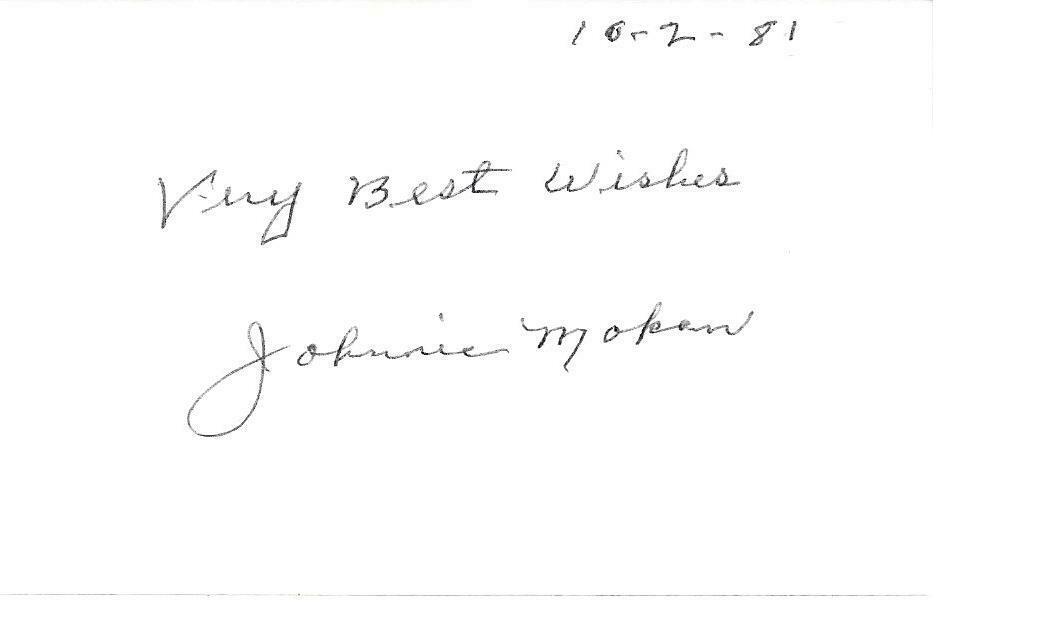 10-2-81
Very Best Wishes
Johnnie Mokan